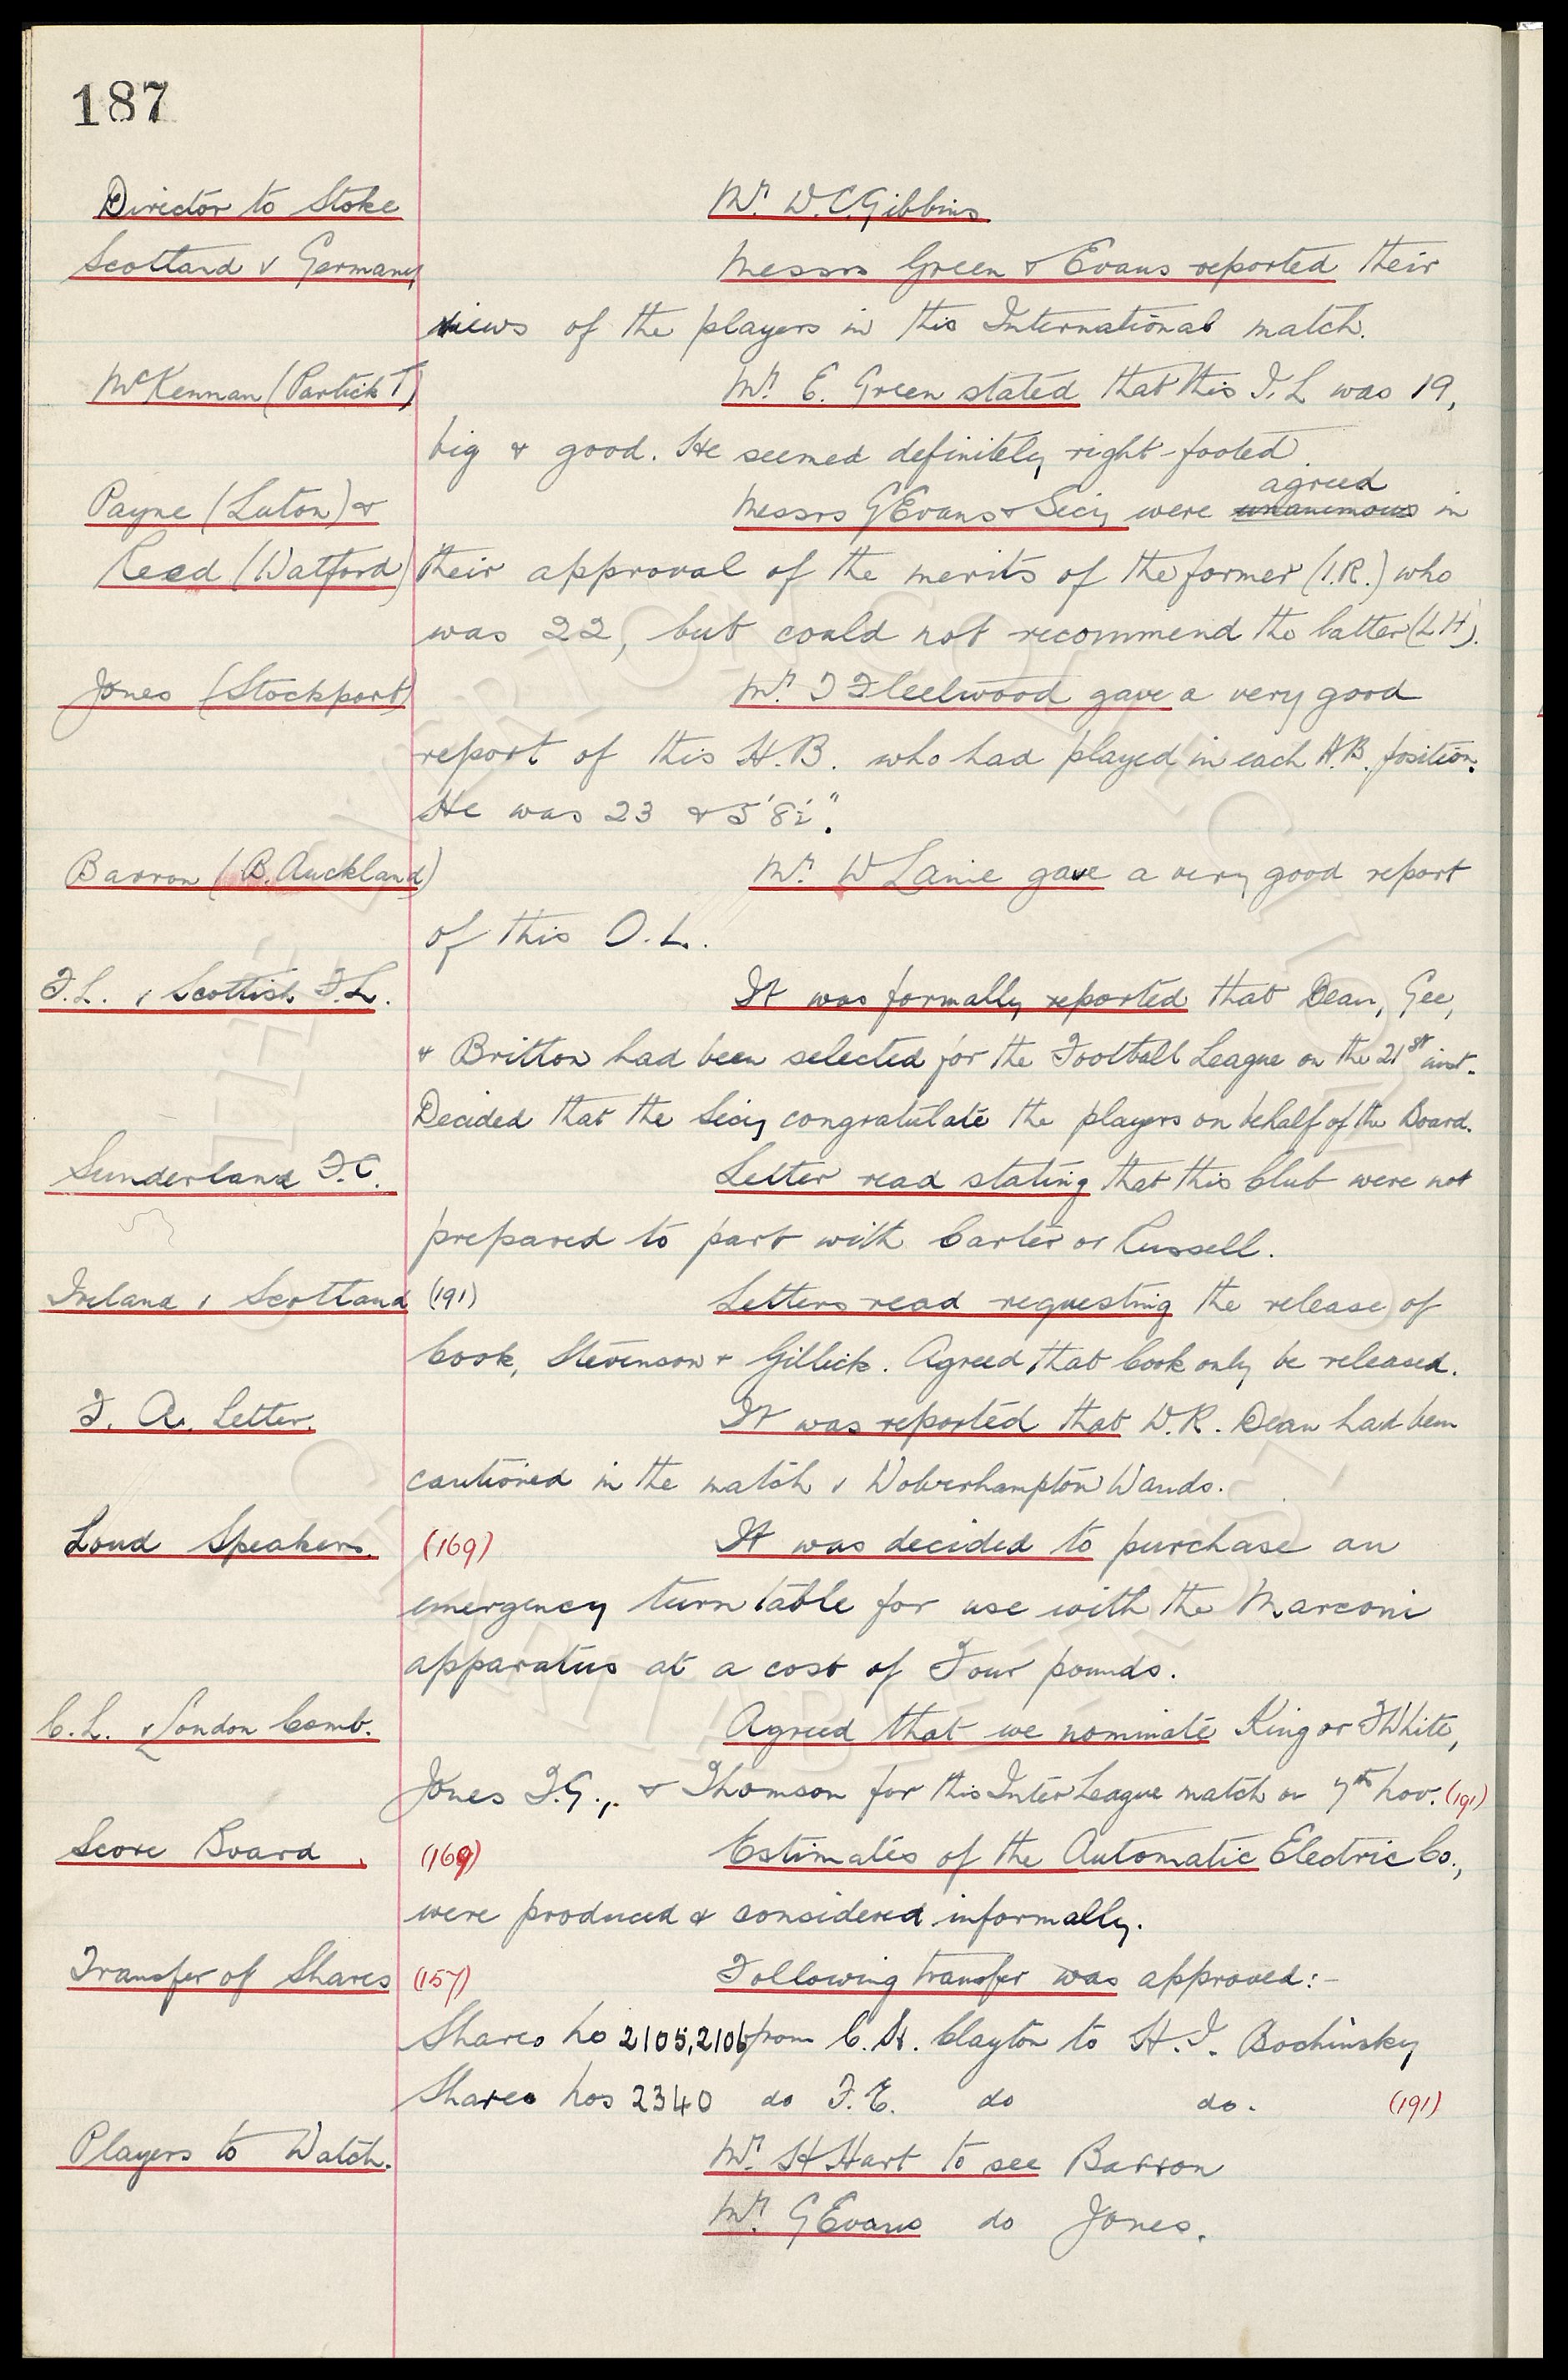 187
Director to Stoke Mr. W.C. Gibbins
Scotland v Germany Messrs Green & Evans reported their
views of the players in this International match.
McKennan (Partick T) Mr. E. Green stated that this I.L was 19,
big & good. He seemed definitely right-footed.
agreed
Payne (Luton) & Messrs G Evans & Secy were unanimous in
Reed (Watford) their approval of the merits of the former (I.R.) who
was 22, but could not recommend the latter (L.H).
Jones (Stockport) Mr. T Fleetwood gave a very good
report of this H.B. who had played in each H.B. position.
He was 23 & 5'8½".
Barron (B. Auckland) Mr. W Lanie gave a very good report
of this O.L.
F.L. v Scottish F.L. It was formally reported that Dean, Gee,
& Britton had been selected for the Football League on the 21st inst.
Decided that the Secy congratulate the players on behalf of the Board.
Sunderland F.C. Letter read stating that this Club were not
prepared to part with Carter or Russell.
Ireland v Scotland (191) Letters read requesting the release of
Cook, Stevenson & Gillick. Agreed that Cook only be released.
F. A. Letter. It was reported that W.R. Dean had been
cautioned in the match v Wolverhampton Wands.
Loud Speakers. (169) It was decided to purchase an
emergency turn table for use with the Marconi
apparatus at a cost of Four pounds.
C.L. v London Comb. Agreed that we nominate King or F White,
Jones T.G., & Thomson for this Inter League match on 7th Nov. (191)
Score Board. (169) Estimates of the Automatic Electric Co.,
were produced & considered informally.
Transfer of Shares (157) Following transfer was approved:-
Shares No 2105,2106 from C. H. Clayton to H. I. Bochinsky
Shares Nos 2340 do F.E. do do. (191)
Players to Watch. Mr. H Hart to see Barron
Mr. G Evans do Jones.